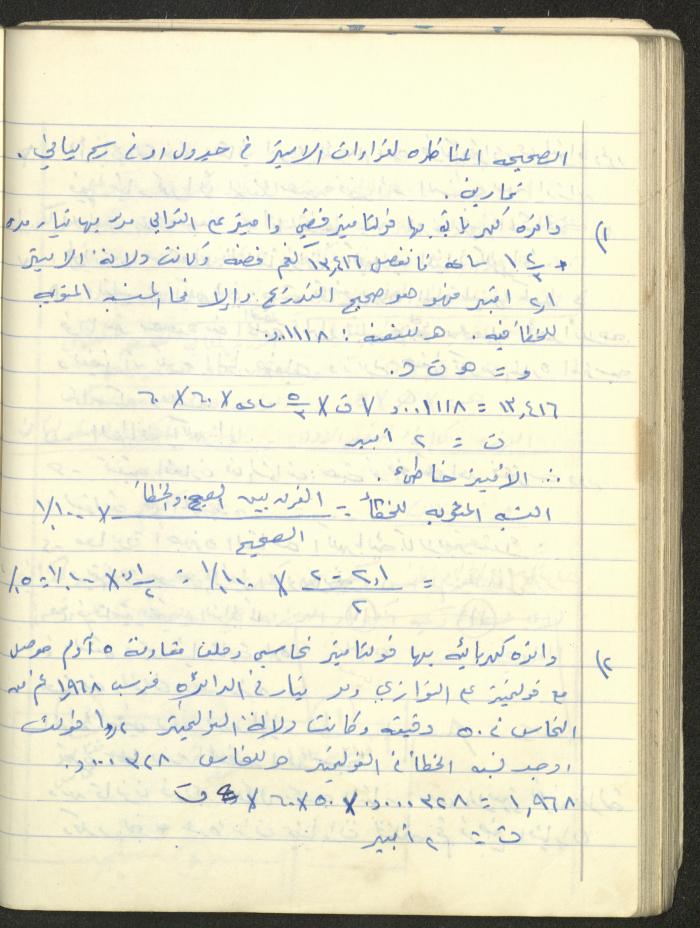 الصحيحه المناظره لقراءات الاميتر في جدول او في رسم بياني .
تمارين .
١) دائره كهربائية بها فولتاميتر فضي واميتر على التوالي مر بها تيار مده
١ ٢/٣ ساعه فانفصل ١٣,٤١٦ كغم فضه وكانت دلالة الاميتر
٢,١ امبير فهو هو صحيح التدريج والا فما النسبه المئويه
للخطأ فيه . هـ للفضه : ٠,٠٠١١١٨
و = هـ ت د .
١٣,٤١٦ = ٠,٠٠١١١٨ X ت X ٥/٣ ساعه X ٦٠ X ٦٠
ت = ٢ أمبير
∴ الأميتر خاطئ .
النسبه المئويه للخطأ = الفرق بين الصحيح والخطأ X ١٠٠٪
الصحيح
= ٢,١ - ٢ / ٢ X ١٠٠٪ = ٠,١ / ٢ X ١٠٠٪ = ٥٪
٢) دائره كهربائيه بها فولتاميتر نحاسي وملف مقاومته ٥ أوم موصل
مع فولميتر على التوازي ومر تيار في الدائره فرسب ١,٩٦٨ غم من
النحاس في ٥٠ دقيقه وكانت دلالة الفولميتر فولت
اوجد نسبه الخطأ في الفولميتر هـ للنحاس ٠,٠٠٠٣٢٨
١,٩٦٨ = ٠,٠٠٠٣٢٨ X ٥٠ X ٦٠ X ت
ت = ٢ أمبير